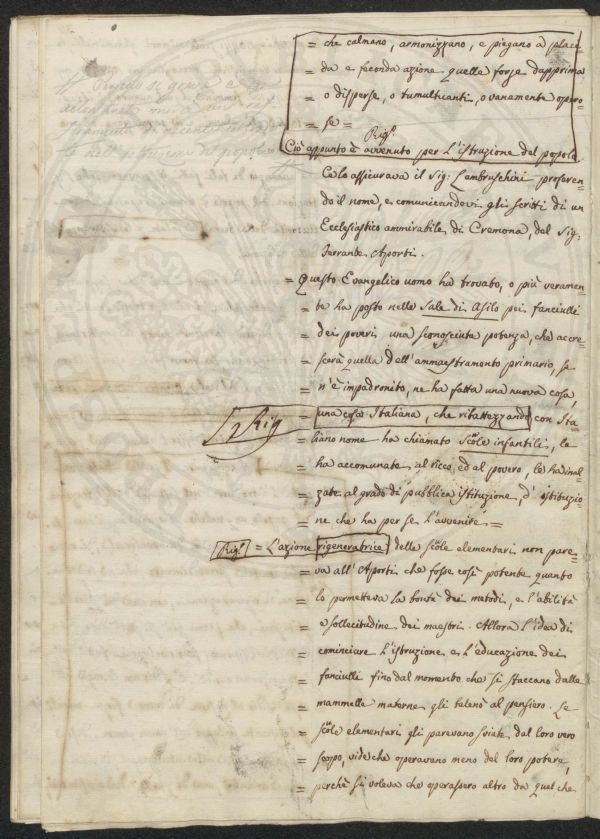 = che calmano, armonizzano, e piegano a placi-
= da e feconda azione quelle forze dapprima
= o disperse, o tumultuanti, o vanamente opero-
= se =
Rigº.
Ciò appunto è avvenuto per l'istruzione del popolo.
Ce lo assicurava il Sig: Lambruschini proferen-
do il nome, e comunicandovi gli scritti di un
Ecclesiastico ammirabile di Cremona, del Sig:
Ferrante Aporti.
= Questo Evangelico uomo ha trovato, o più veramen-
= te ha posto nelle Sale di Asilo pei fanciulli
= dei poveri una sconosciuta potenza, che accre-
= scerà quella dell'ammaestramento primario, se
= n'è impadronito, ne ha fatta una nuova cosa,
= una cosa Italiana, che ribattezzando con Ita-
= liano nome ha chiamato Scuole infantili, le
= ha accomunate al ricco, ed al povero, le ha inal-
= zate al grado di pubblica istituzione, d'istituzio-
= ne che ha per se l'avvenire =
Rig
Rigº = L'azione rigeneratrice delle scuole elementari non pare-
= va all'Aporti che fosse così potente quanto
= lo permetteva la bontà dei metodi, e l'abilità
= e sollecitudine dei maestri. Allora l'idea di
= cominciare l'istruzione e l'educazione dei
= fanciulli fino dal momento che si staccano dalle
= mammelle materne gli balenò al pensiero. Le
= scuole elementari gli parevano sviate dal loro vero
= scopo, vide che operavano meno del loro potere,
= perchè si voleva che operassero altro da quel che